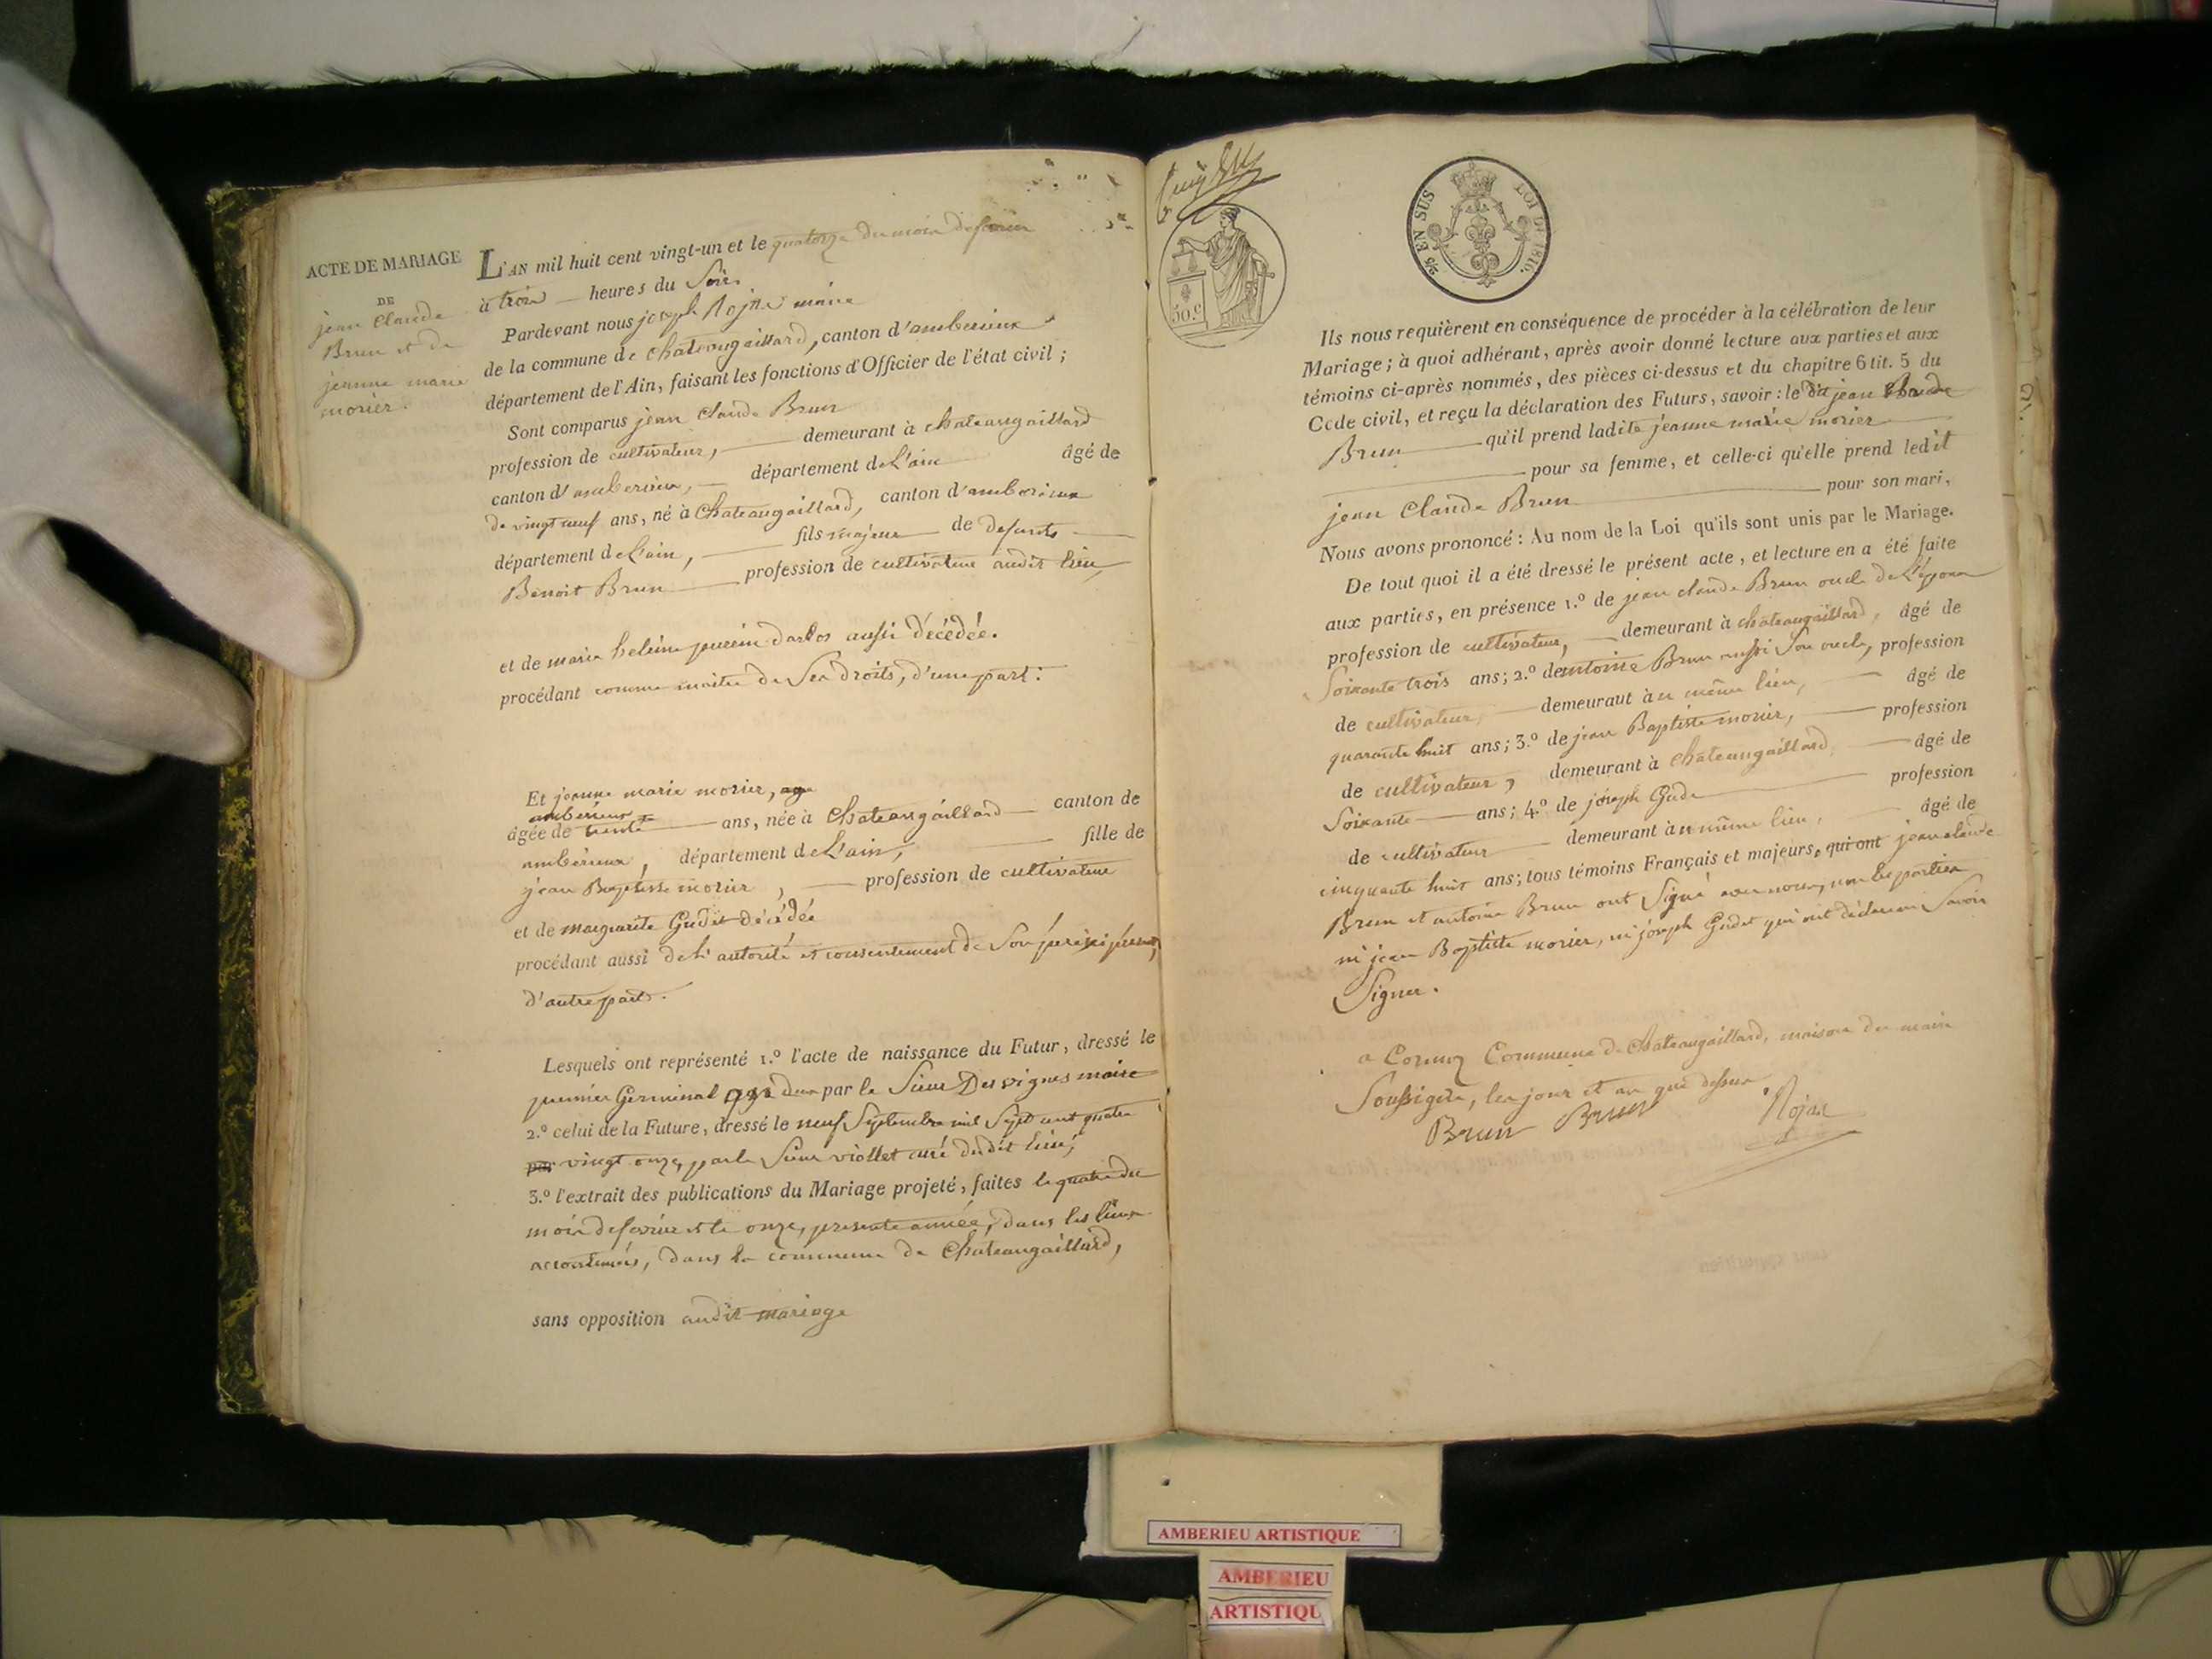 ACTE DE MARIAGE
DE
jean Claude
Brun et de
jeanne marie
morier.
L'AN mil huit cent vingt-un et le quatorze du mois de fevrier
à trois heures du Soir
Pardevant nous joseph Rojat maire
de la commune de chateaugaillard, canton d'amberieux
département de l'Ain, faisant les fonctions d'Officier de l'état civil ;
Sont comparus jean Claude Brun
profession de cultivateur, demeurant à chateaugaillard
canton d'amberieux, département de L'ain âgé de
de vingt neuf ans, né à Chateaugaillard, canton d'amberieux
département de L'ain, fils majeur de defunts
Benoit Brun profession de cultivateur audit lieu,
et de marie heleine aussi décédée.
procédant comme maitre de Ses droits, d'une part.
Et jeanne marie morier,
amberieux
âgée de trente ans, née à Chateaugaillard canton de
amberieux, département de L'ain, fille de
jean Baptiste morier, profession de cultivateur
et de marguerite Gudet décédée
procédant aussi de L'autorité et consentement de Son père ici présent,
d'autre part.
Lesquels ont représenté 1.º l'acte de naissance du Futur, dressé le
premier Germinal an deux par le Sieur Desvignes maire
2.º celui de la Future, dressé le neuf Septembre mil Sept cent quatre
par vingt onze, par le Sieur viollet curé dudit lieu,
3.º l'extrait des publications du Mariage projeté, faites le quatre du
mois de fevrier et le onze, presente année, dans les lieux
accoutumés, dans la commune de Chateaugaillard,
sans opposition audit mariage
50.c
2/5 EN SUS
LOI DE 1816.
Ils nous requièrent en conséquence de procéder à la célébration de leur
Mariage ; à quoi adhérant, après avoir donné lecture aux parties et aux
témoins ci-après nommés, des pièces ci-dessus et du chapitre 6 tit. 5 du
Code civil, et reçu la déclaration des Futurs, savoir : le dit jean Claude
Brun qu'il prend ladite jeanne marie morier
pour sa femme, et celle-ci qu'elle prend ledit
jean Claude Brun pour son mari,
Nous avons prononcé : Au nom de la Loi qu'ils sont unis par le Mariage.
De tout quoi il a été dressé le présent acte, et lecture en a été faite
aux parties, en présence 1.º de jean claude Brun oncle de L'epoux
profession de cultivateur, demeurant à chateaugaillard, âgé de
Soixante trois ans ; 2.º de antoine Brun aussi Son oncle, profession
de cultivateur, demeurant à u même lieu, âgé de
quarante huit ans ; 3.º de jean Baptiste morier, profession
de cultivateur, demeurant à Chateaugaillard, âgé de
Soixante ans ; 4.º de joseph Gudet profession
de cultivateur demeurant à u même lieu, âgé de
cinquante huit ans ; tous témoins Français et majeurs, qui ont jean claude
Brun et antoine Brun ont Signé avec nous, non les parties
ni jean Baptiste morier, ni joseph Gudet qui ont déclaré ne Savoir
Signer.
a Cormoz Commune de Chateaugaillard, maison du maire
Soussigné, les jour et an que dessus
Brun Brun Rojat
AMBERIEU ARTISTIQUE
AMBERIEU
ARTISTIQU